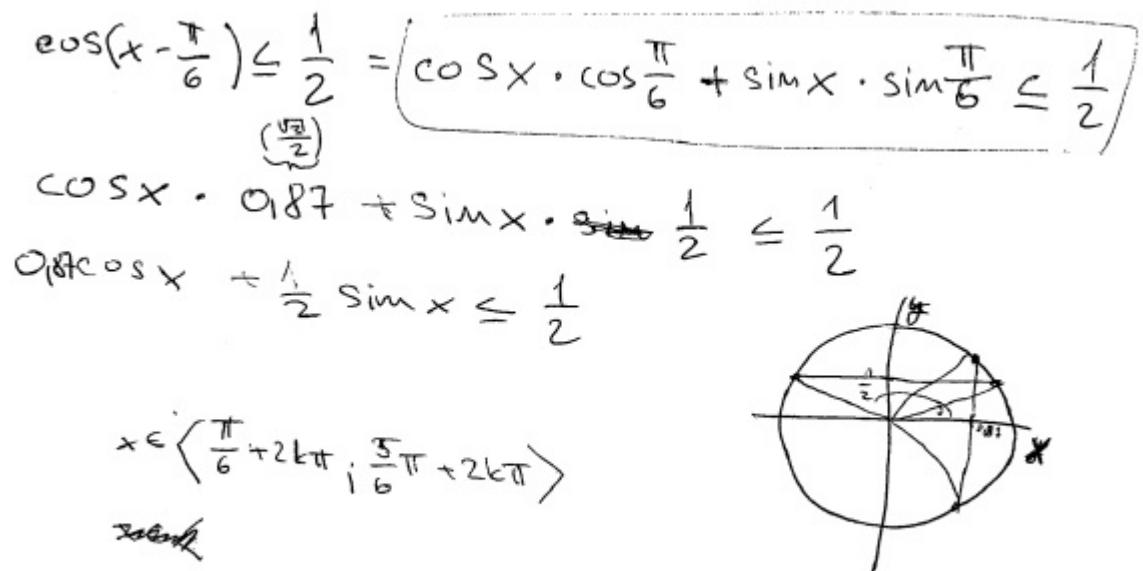 cos(x - π/6) ≤ 1/2 = cosx · cos π/6 + sinx · sin π/6 ≤ 1/2
(√3/2)
cosx · 0,87 + sinx · 1/2 ≤ 1/2
0,87cosx + 1/2 sinx ≤ 1/2
y
1/2
x ∈ ⟨π/6 + 2kπ ; 5/6 π + 2kπ⟩